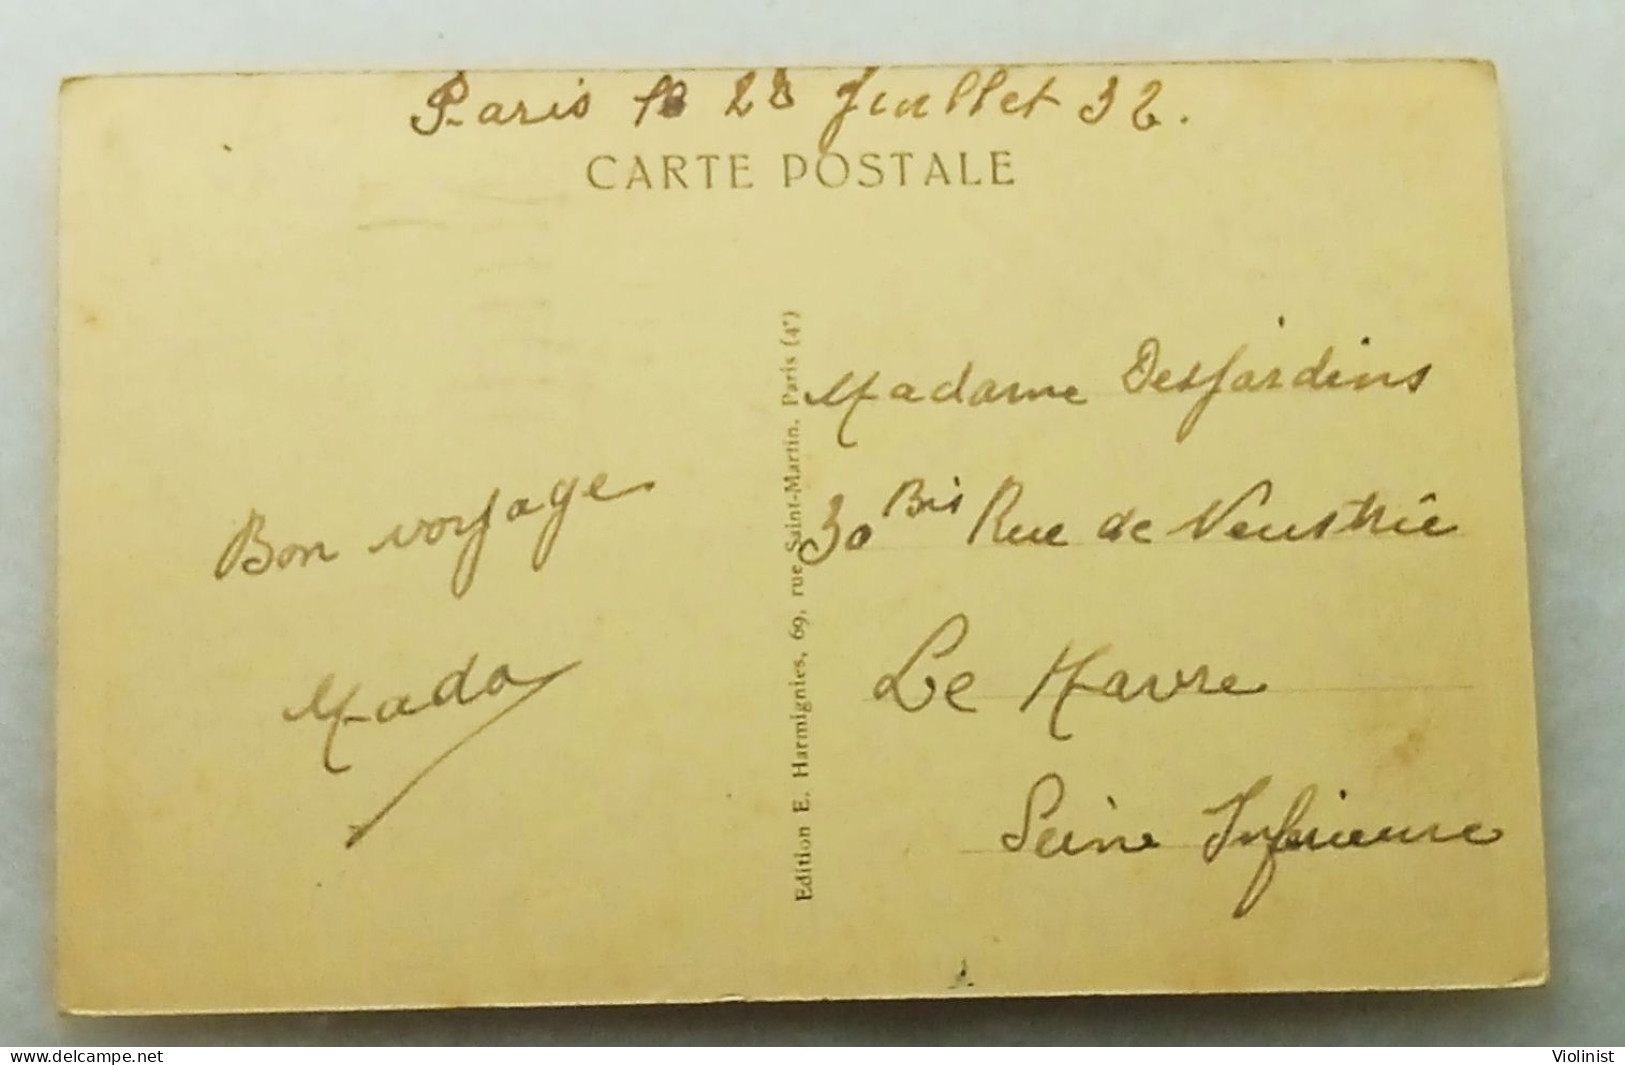 Paris le 28 Juillet 32.
CARTE POSTALE
Bon voyage
Mado
Edition E. Harmignies, 69, rue Saint-Martin, Paris (4e)
Madame Desjardins
30 Bis Rue de Neustrie
Le Havre
Seine Inferieure
www.delcampe.net
Violinist